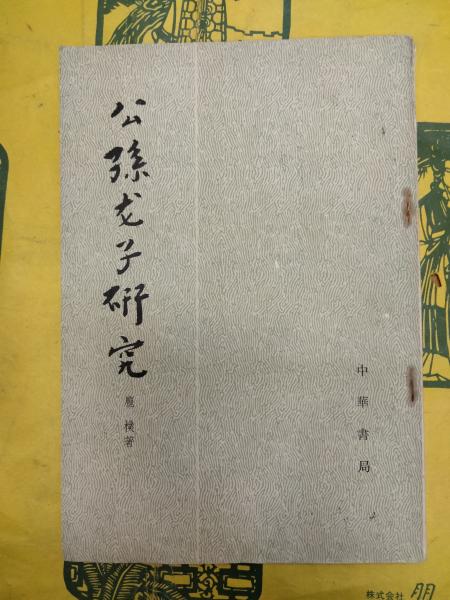 公孫龙子研究
龐樸著
中華書局
株式会社 朋